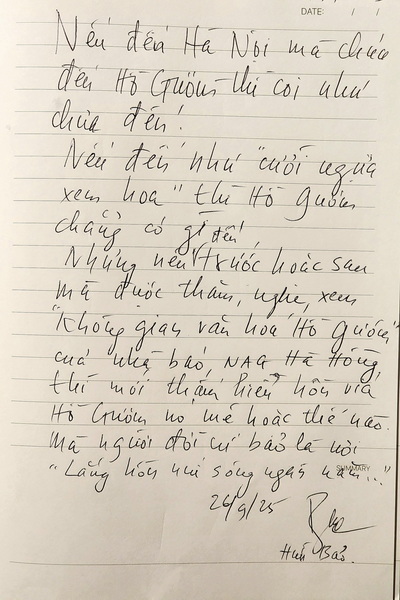 DATE: / /
Nếu đến Hà Nội mà chưa
đến Hồ Gươm thì coi như
chưa đến!
Nếu đến như "cưỡi ngựa
xem hoa" thì Hồ Gươm
chẳng có gì
Nhưng nếu đến trước hoặc sau
mà được thăm, nghe, xem
"Không gian văn hoá Hồ Gươm"
của nhà báo, NAG Hà Hồng,
thì mới thấm hiểu hồn vía
Hồ Gươm nó mê hoặc thế nào.
mà người đời cứ bảo là nơi
"Lắng hồn núi sông ngàn năm..."
SUMMARY
26/9/25
Bảo.